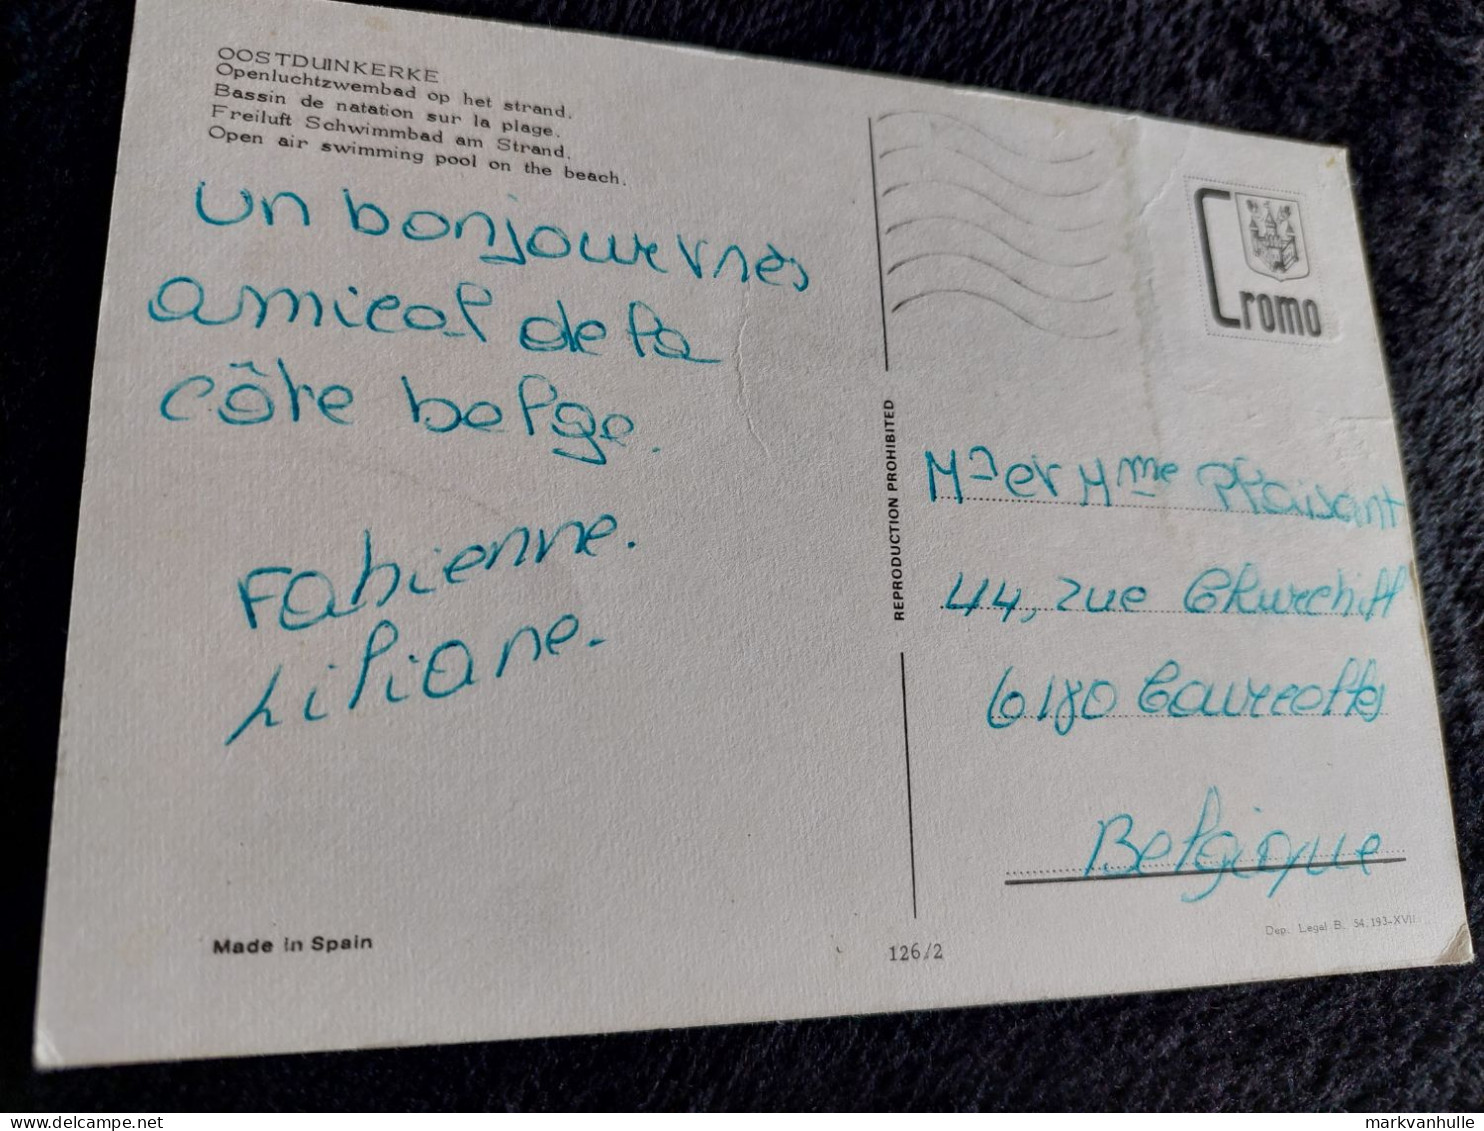 OOSTDUINKERKE
Openluchtzwembad op het strand.
Bassin de natation sur la plage.
Freiluft Schwimmbad am Strand.
Open air swimming pool on the beach.
un bonjour très
amical de la
côte belge.
Fabienne.
Liliane.
Made in Spain
REPRODUCTION PROHIBITED
126/2
Cromo
Mr et Mme Plaisant
44, rue Churchill
6180 Courcelles
Belgique
Dep. Legal B. 54.193-XVII
delcampe.net
markvanhulle